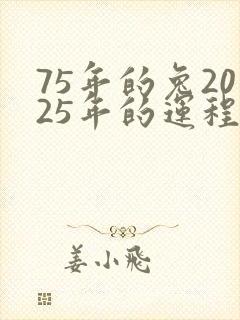 75年的兔20
25年的運程
姜小飛